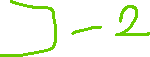 ] - 2